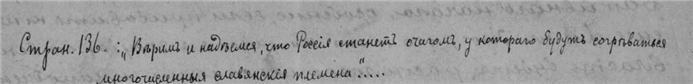 Стран. 136.: „Вѣримъ и надѣемся, что Россія станетъ очагомъ, у котораго будутъ согрѣваться
многочисленныя славянскія племена“.....